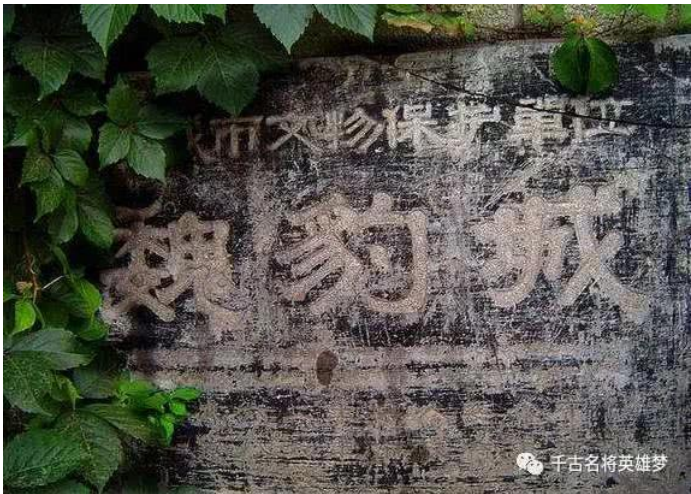 市文物保护单位
魏豹城
千古名将英雄梦